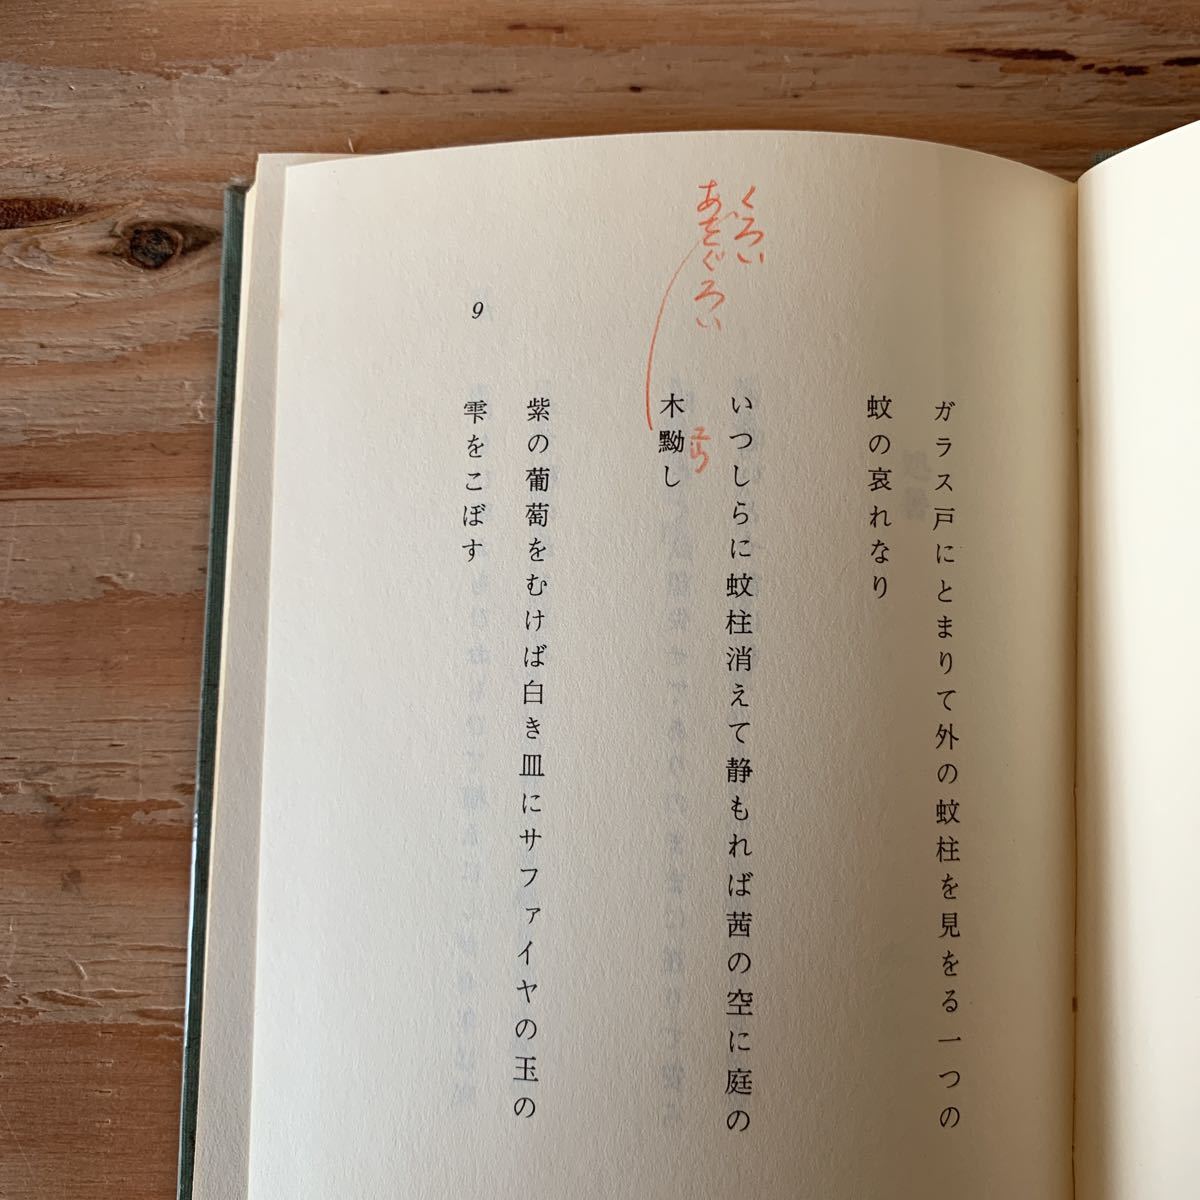 ガラス戸にとまりて外の蚊柱を見をる一つの
蚊の哀れなり
いつしらに蚊柱消えて静もれば茜の空に庭の
木黝し
紫の葡萄をむけば白き皿にサファイヤの玉の
雫をこぼす
9
くろい
あをぐろい